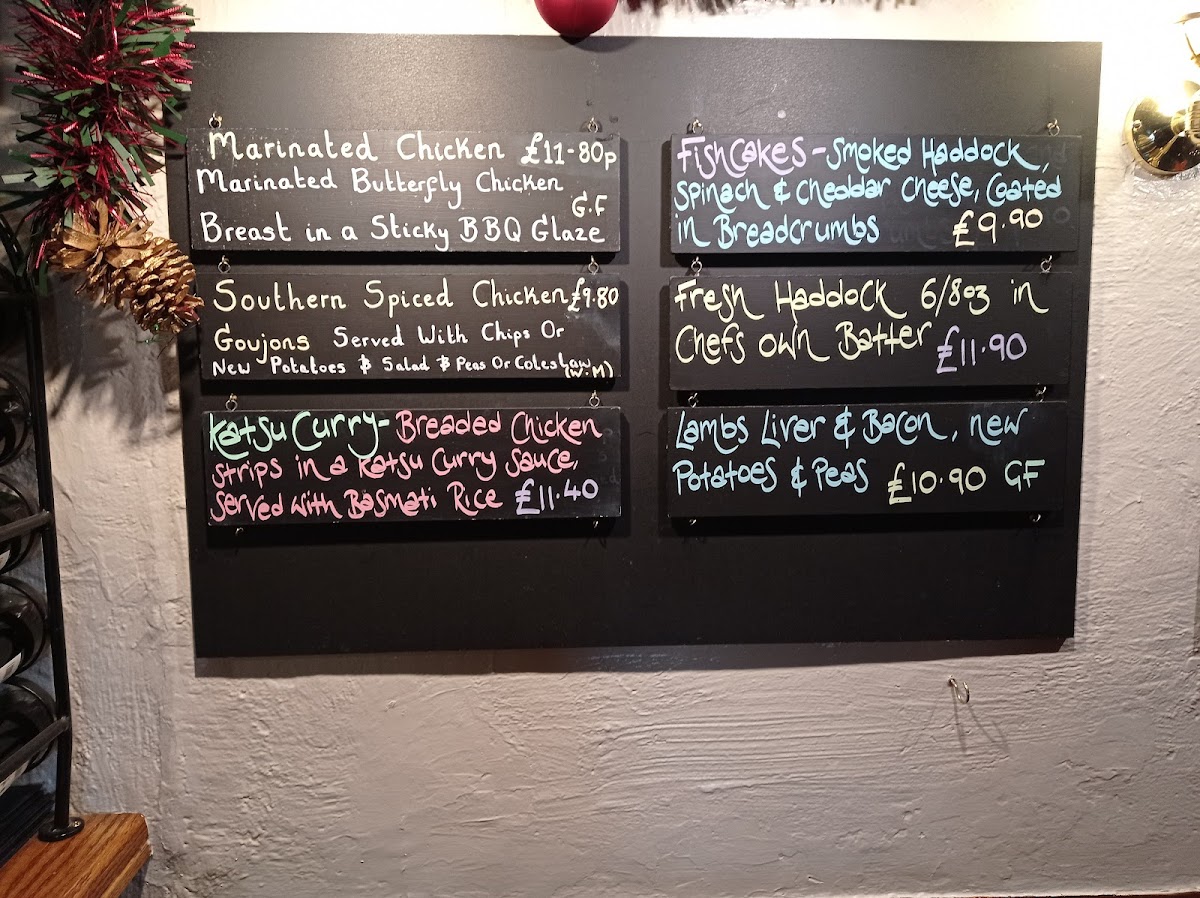 Marinated Chicken £11-80p
Marinated Butterfly Chicken
G.F
Breast in a Sticky BBQ Glaze
Southern Spiced Chicken £9.80
Goujons Served With Chips Or
New Potatoes & Salad & Peas Or Coleslaw
(W.M)
Katsu Curry - Breaded Chicken
strips in a Katsu Curry Sauce,
served with Basmati Rice £11.40
Fishcakes - Smoked Haddock,
Spinach & Cheddar Cheese, Coated
in Breadcrumbs £9.90
Fresh Haddock 6/8oz in
Chefs own Batter £11.90
Lambs Liver & Bacon, new
Potatoes & Peas £10.90 GF